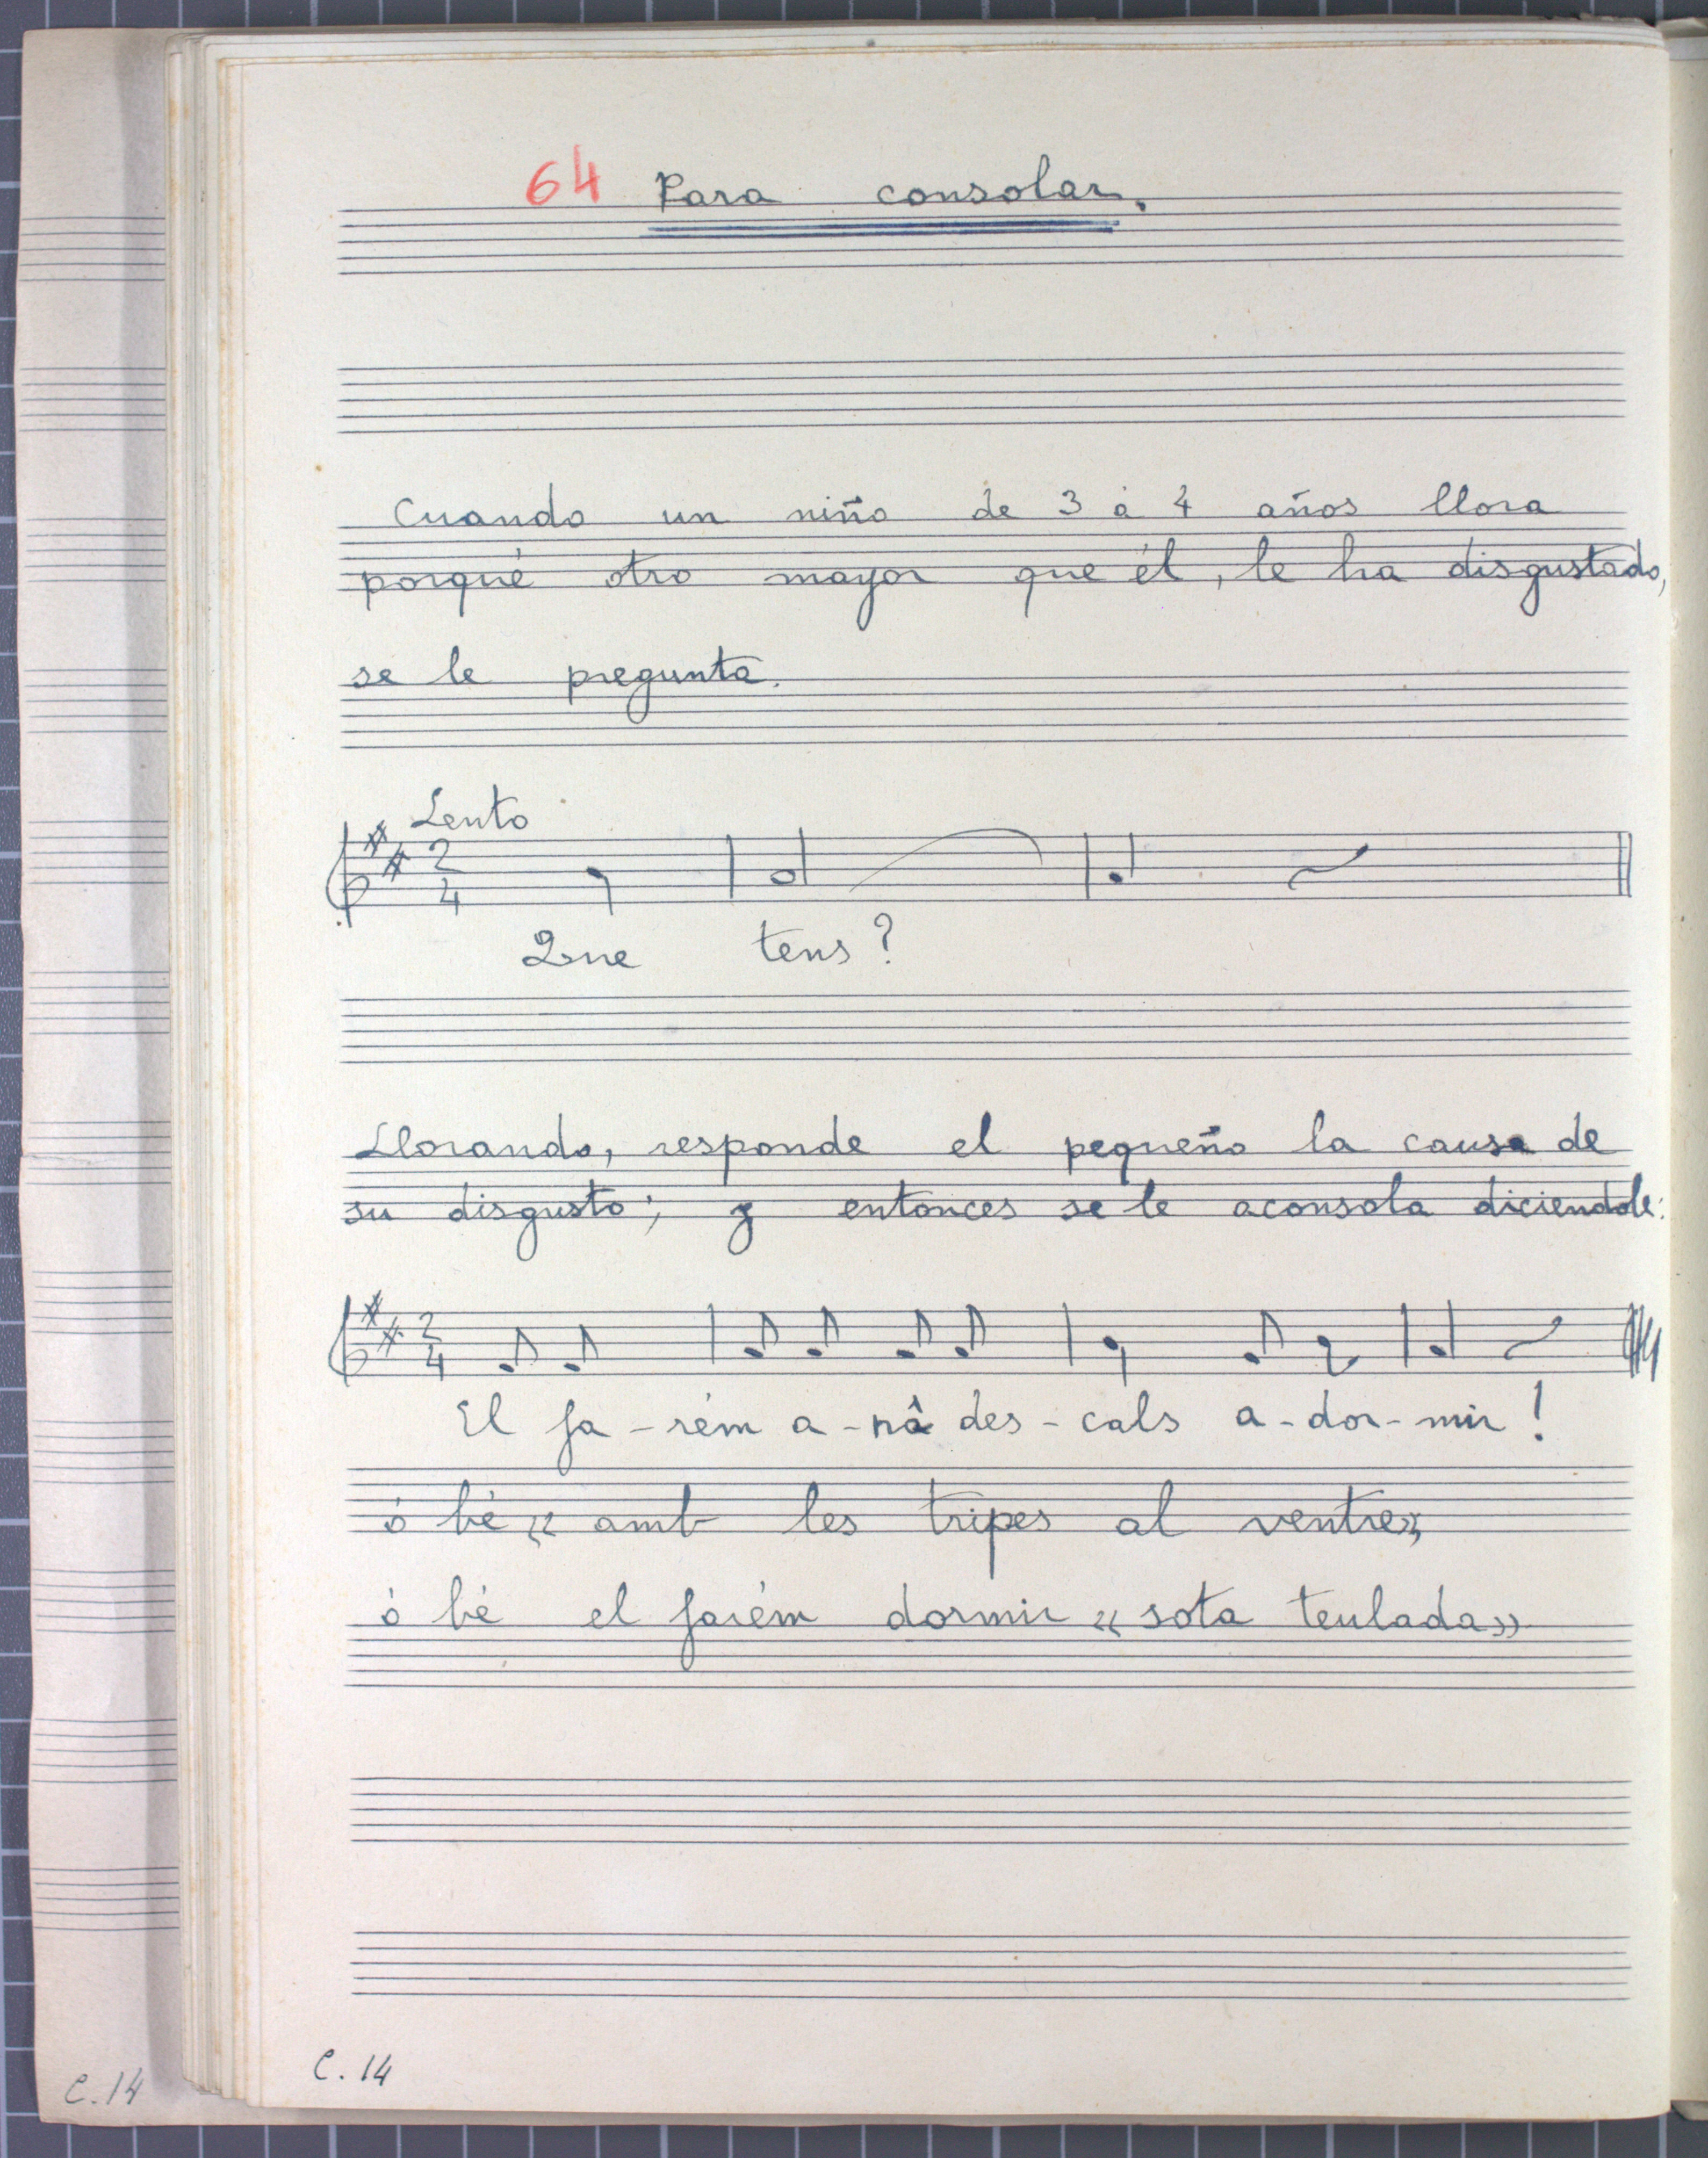 64 Para consolar.
Cuando un niño de 3 à 4 años llora
porqué otro mayor que él, le ha disgustado,
se le pregunta.
Lento
2
4
Que tens?
Llorando, responde el pequeño la causa de
su disgusto; y entonces se le aconsola diciendole:
2
4
El fa-rém a-nâ des-cals a-dor-mir!
ó bé «amb les tripes al ventre»,
ó bé el farém dormir «sota teulada»
C. 14
C. 14